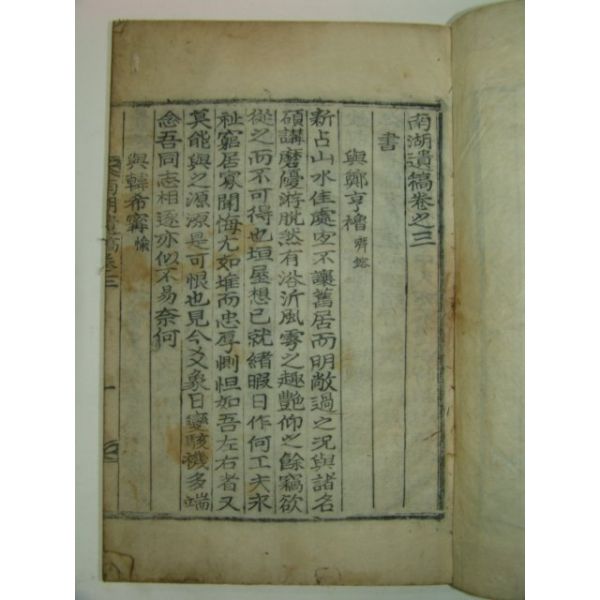 南湖遺稿卷之三
書
與鄭亨櫓 齊鎔
新占山水佳處定不讓舊居而明敞過之況與諸名
碩講磨優游脫然有浴沂風雩之趣艶仰之餘竊欲
從之而不可得也垣屋想已就緒暇日作何工夫永
祉窮居寡聞悔尤如堆而忠厚惻怛如吾左右者又
莫能與之源源是可恨也見今爻象日變駭機多端
念吾同志相逐亦似不易奈何
與韓希寗 愉
南湖遺稿卷三
一